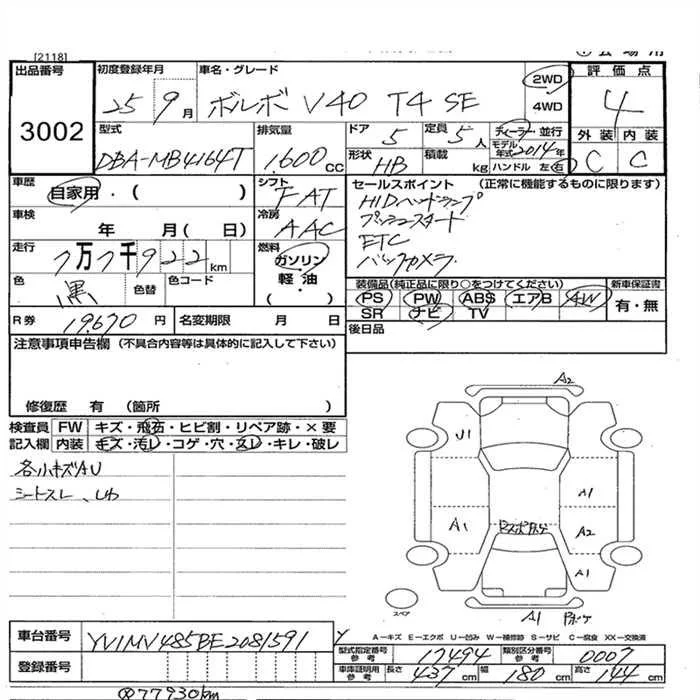 [2118]
出品番号
3002
初度登録年月
25 9月
車名・グレード
ボルボ V40 T4 SE
2WD
4WD
評価点
4
外装 内装
C C
型式
DBA-MB4164T
排気量
1.600 CC
ドア
5
定員
5人
形状
HB
積載
kg
ディーラー 並行
モデル年式 2014年
ハンドル 左 右
車歴
自家用・( )
シフト
FAT
車検
年 月( 日)
冷房
AAC
走行
7万7千922km
燃料
ガソリン
軽油
・( )
色
黒
色替
色コード
R券
19,670円
名変期限 月 日
セールスポイント (正常に機能するものに限ります)
HIDヘッドランプ
プッシュスタート
ETC
バックカメラ
装備品(純正品に限り○をつけてください)
PS PW ABS エアB AW
SR ナビ TV
新車保証書
有・無
後日品
注意事項申告欄 (不具合内容等は具体的に記入して下さい)
修復歴 有 (箇所 )
検査員
記入欄
FW キズ・飛石・ヒビ割・リペア跡・×要
内装 キズ・汚レ・コゲ・穴・スレ・キレ・破レ
各小キズAU
シートスレ、しわ
A2
U1
A1
A1
A2
A1
スペア
A1
A-キズ E-エクボ U-凹み W-補修跡 S-サビ C-腐食 XX-交換済
車台番号
YV1MV485BE2081591
登録番号
型式指定番号参考
17494
類別区分番号参考
0007
車庫証明用参考
長さ 437cm 幅 180cm 高さ 144cm
77930km